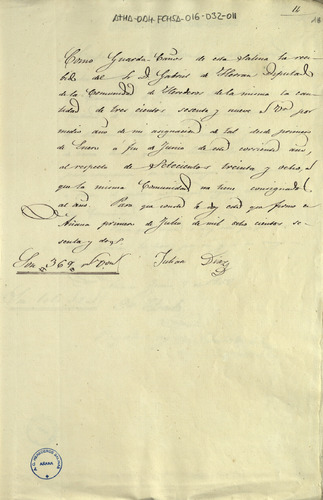 ATHA-DO4-FCHSA-016-032-011
16
Como Guarda Caños de esta Salina he re-
cibido del Sr. D. Gabriel de Herran Diputado
de la Comunidad de Herederos de la misma la can-
tidad de tres cientos sesenta y nueve rs. Vn por
medio año de mi asignacion de tal desde primero
de Enero a fin de Junio de este corriente año,
al respecto de Setecientos treinta y ocho, 
que la misma Comunidad me tiene consignados
al año. Para que conste lo doy este que firmo en
Añana primero de Julio de mil ocho cientos se-
senta y dos.
Son 369 rs. Vn.
Julian Diaz
AÑANA